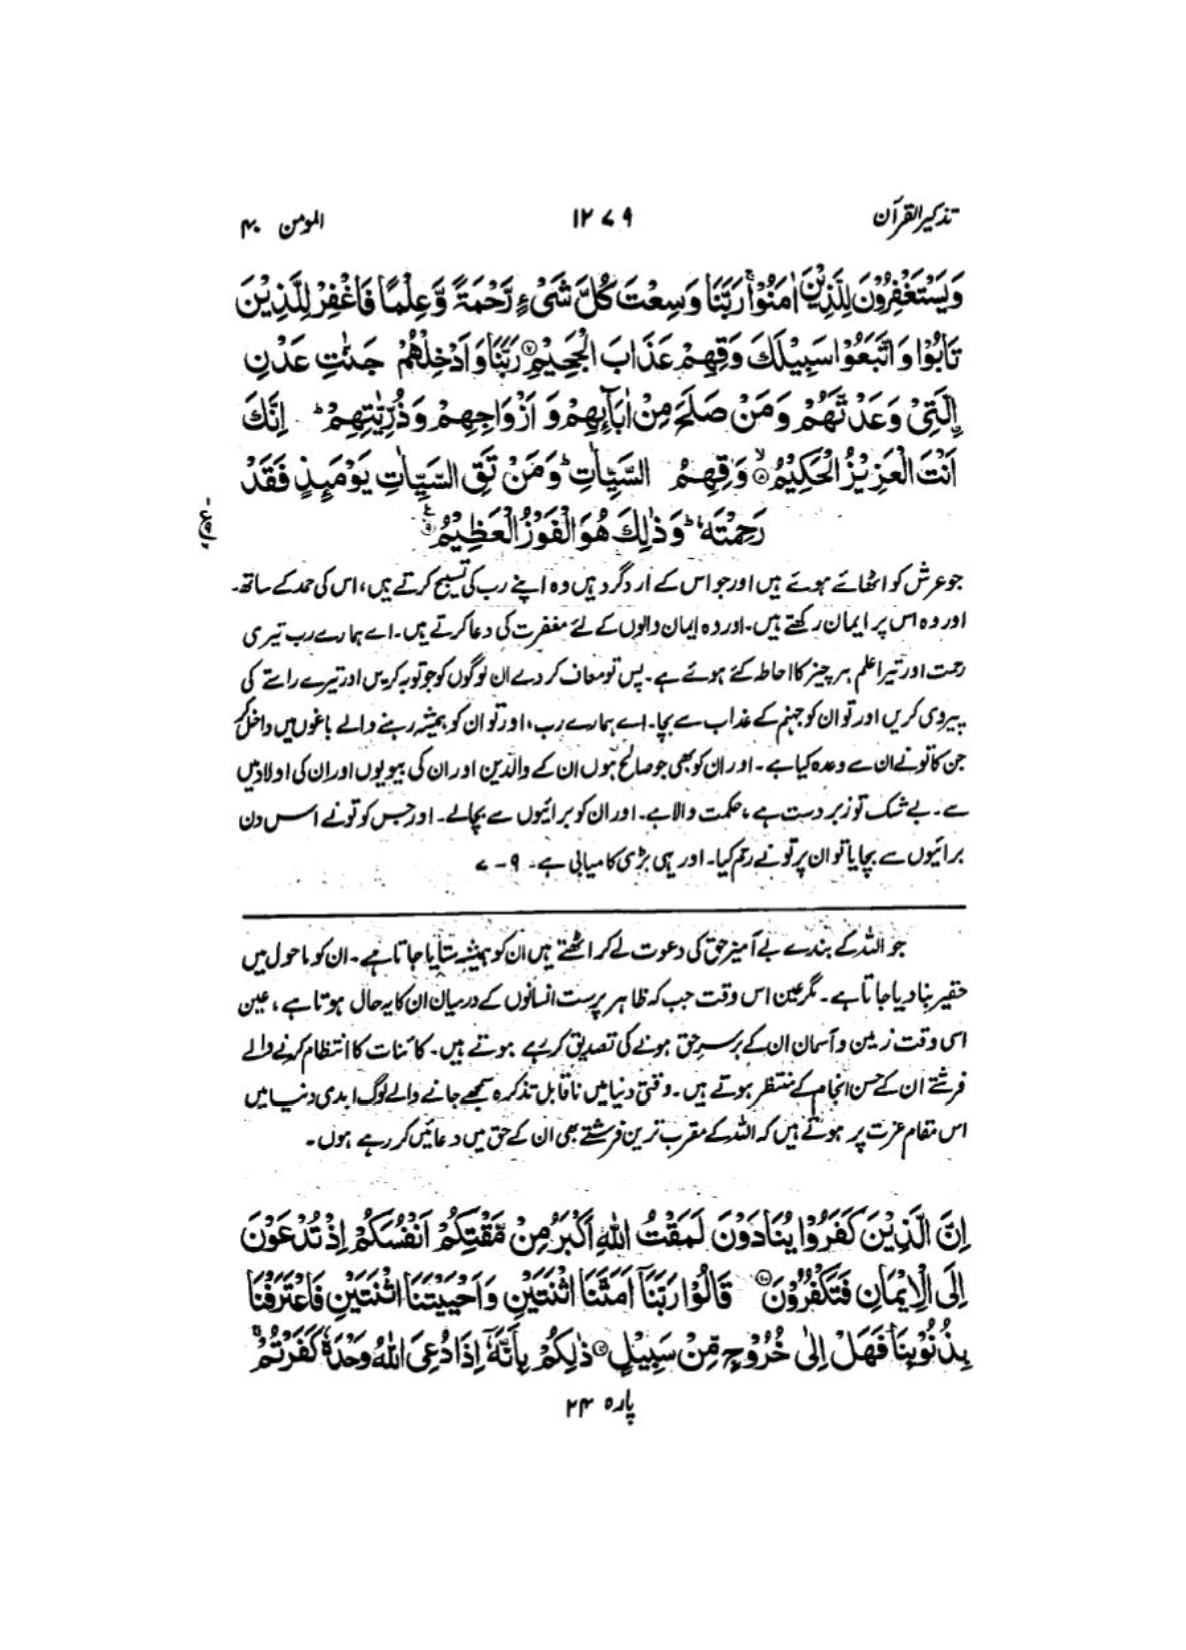 تذکیر القرآن ۱۲۷۹ المومن ۴۰
وَيَسْتَغْفِرُوْنَ لِلَّذِيْنَ اٰمَنُوْا ۚ رَبَّنَا وَسِعْتَ كُلَّ شَیْءٍ رَّحْمَةً وَّعِلْمًا فَاغْفِرْ لِلَّذِيْنَ
تَابُوْا وَاتَّبَعُوْا سَبِيْلَكَ وَقِهِمْ عَذَابَ الْجَحِيْمِ ۝۷ رَبَّنَا وَاَدْخِلْهُمْ جَنّٰتِ عَدْنِ
اِلَّتِیْ وَعَدْتَّهُمْ وَمَنْ صَلَحَ مِنْ اٰبَآئِهِمْ وَاَزْوَاجِهِمْ وَذُرِّيّٰتِهِمْ ؕ اِنَّكَ
اَنْتَ الْعَزِيْزُ الْحَكِيْمُ ۝۸ۙ وَقِهِمُ السَّيِّاٰتِ ؕ وَمَنْ تَقِ السَّيِّاٰتِ يَوْمَئِذٍ فَقَدْ
رَحِمْتَهٗ ؕ وَذٰلِكَ هُوَ الْفَوْزُ الْعَظِيْمُ ۝۹ۧ
جو عرش کو اٹھائے ہوئے ہیں اور جو اس کے ارد گرد ہیں وہ اپنے رب کی تسبیح کرتے ہیں، اس کی حمد کے ساتھ۔
اور وہ اس پر ایمان رکھتے ہیں۔ اور وہ ایمان والوں کے لئے مغفرت کی دعا کرتے ہیں۔ اے ہمارے رب تیری
رحمت اور تیرا علم ہر چیز کا احاطہ کئے ہوئے ہے۔ پس تو معاف کر دے ان لوگوں کو جو توبہ کریں اور تیرے راستے کی
پیروی کریں اور تو ان کو جہنم کے عذاب سے بچا۔ اے ہمارے رب، اور تو ان کو ہمیشہ رہنے والے باغوں میں داخل کر
جن کا تو نے ان سے وعدہ کیا ہے۔ اور ان کو بھی جو صالح ہوں ان کے والدین اور ان کی بیویوں اور ان کی اولاد میں
سے۔ بے شک تو زبردست ہے، حکمت والا ہے۔ اور ان کو برائیوں سے بچا لے۔ اور جس کو تو نے اس دن
برائیوں سے بچایا تو ان پر تو نے رحم کیا۔ اور یہی بڑی کامیابی ہے۔ ۹-۷
جو اللہ کے بندے بے آمیز حق کی دعوت لے کر اٹھتے ہیں ان کو ہمیشہ ستایا جاتا ہے۔ ان کو ماحول میں
حقیر بنا دیا جاتا ہے۔ مگر عین اس وقت جب کہ ظاہر پرست انسانوں کے درمیان ان کا یہ حال ہوتا ہے، عین
اسی وقت زمین و آسمان ان کے برسرِ حق ہونے کی تصدیق کر رہے ہوتے ہیں۔ کائنات کا انتظام کرنے والے
فرشتے ان کے حسن انجام کے منتظر ہوتے ہیں۔ وقتی دنیا میں ناقابل تذکرہ سمجھے جانے والے لوگ ابدی دنیا میں
اس مقام عزت پر ہوتے ہیں کہ اللہ کے مقرب ترین فرشتے بھی ان کے حق میں دعائیں کر رہے ہوں۔
اِنَّ الَّذِيْنَ كَفَرُوْا يُنَادَوْنَ لَمَقْتُ اللّٰهِ اَكْبَرُ مِنْ مَّقْتِكُمْ اَنْفُسَكُمْ اِذْ تُدْعَوْنَ
اِلَى الْاِيْمَانِ فَتَكْفُرُوْنَ ۝۱۰ قَالُوْا رَبَّنَآ اَمَتَّنَا اثْنَتَيْنِ وَاَحْيَيْتَنَا اثْنَتَيْنِ فَاعْتَرَفْنَا
بِذُنُوْبِنَا فَهَلْ اِلٰى خُرُوْجٍ مِّنْ سَبِيْلٍ ۝۱۱ ذٰلِكُمْ بِاَنَّهٗۤ اِذَا دُعِیَ اللّٰهُ وَحْدَهٗ كَفَرْتُمْ ۚ
پارہ ۲۴